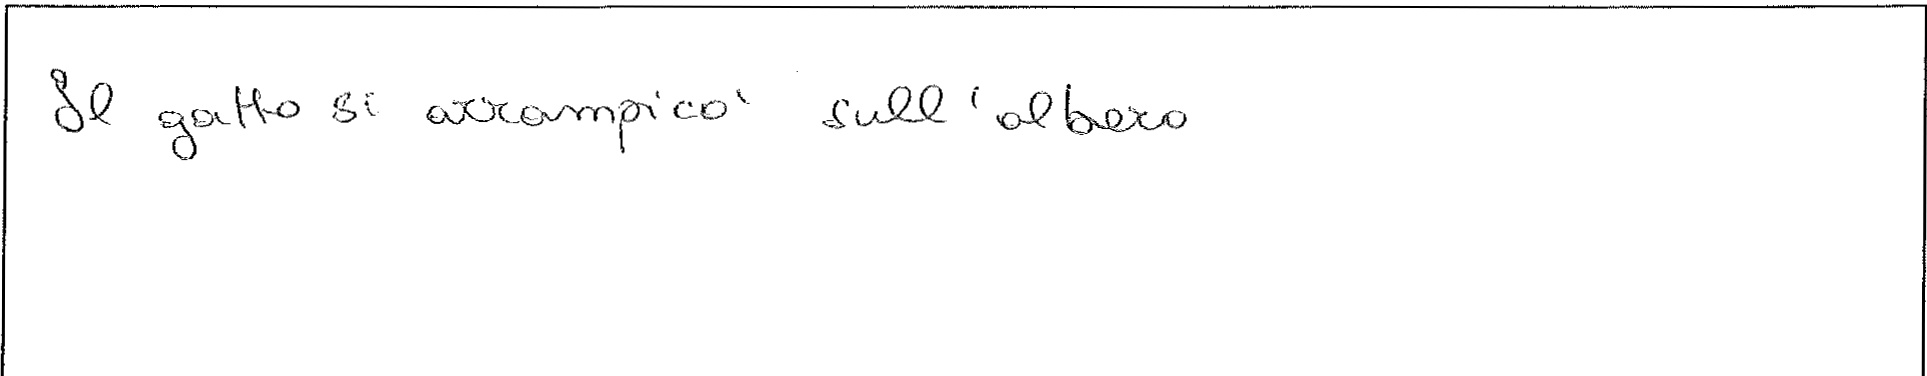 Il gatto si arrampico' sull'albero